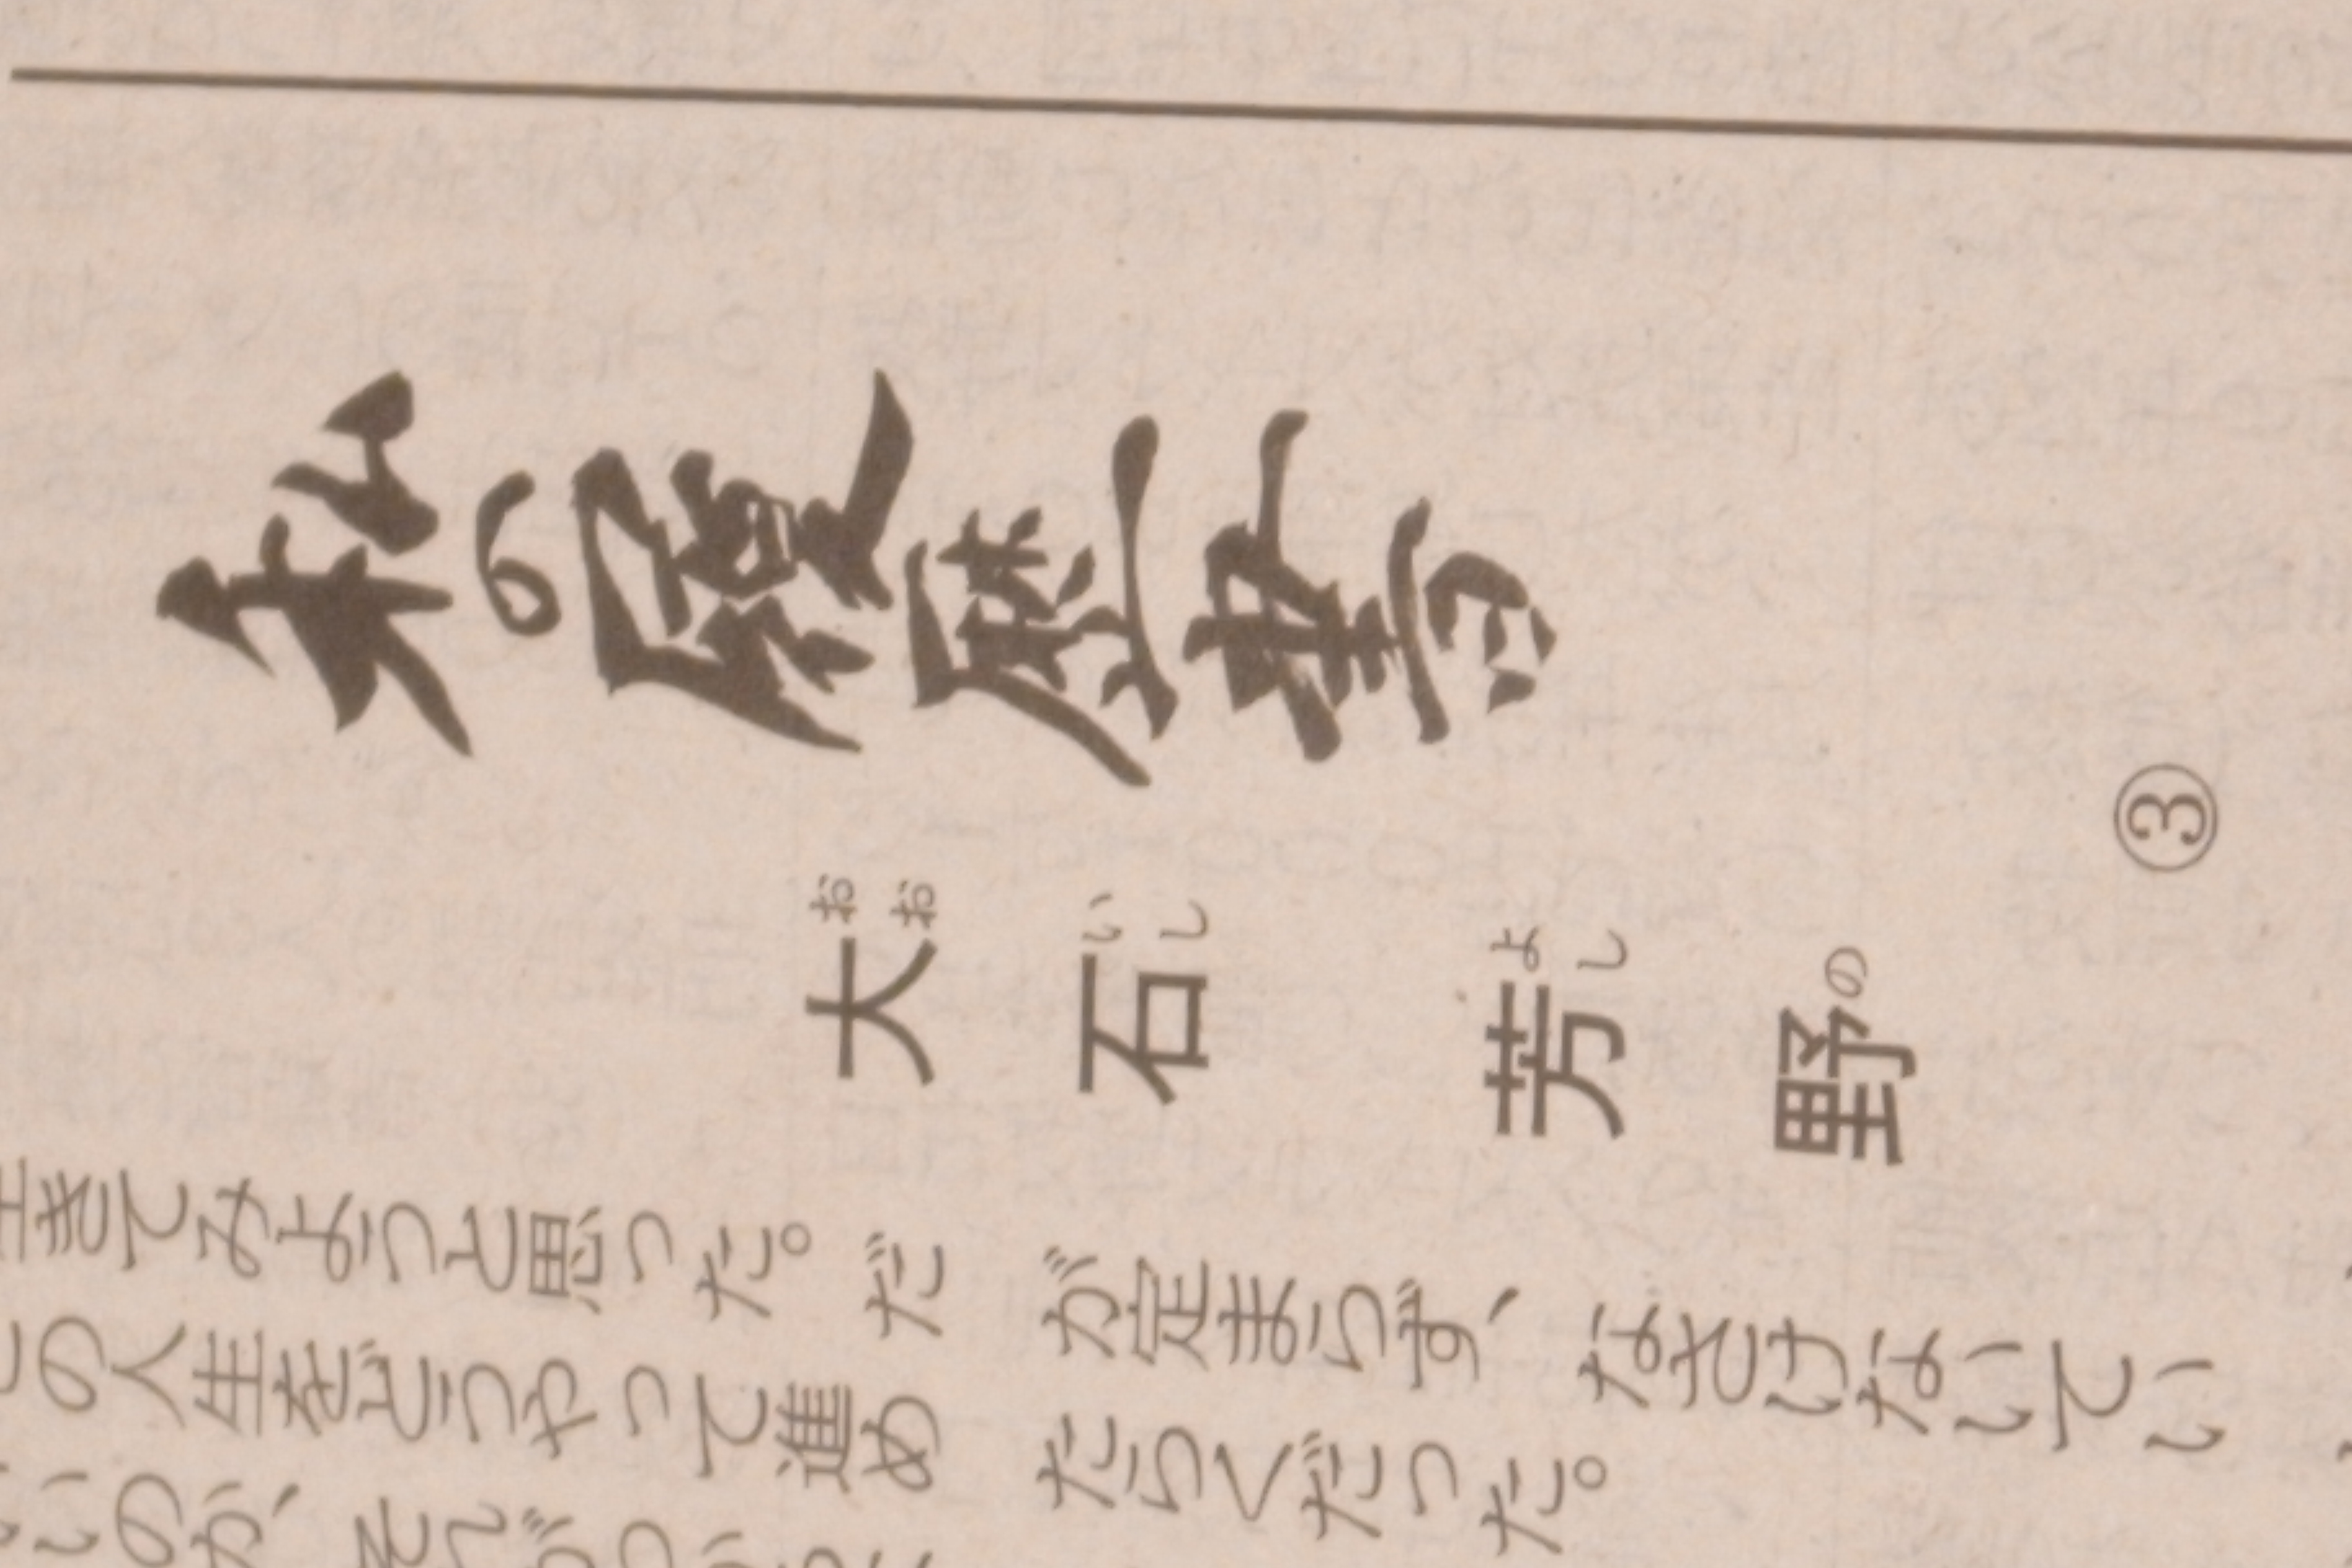 私の履歴書
大石 芳野
おおいし よしの
③
生きてみようと思った。だ
の人生をどうやって進め
いのか、
が定まらず、なさけないてい
たらくだった。